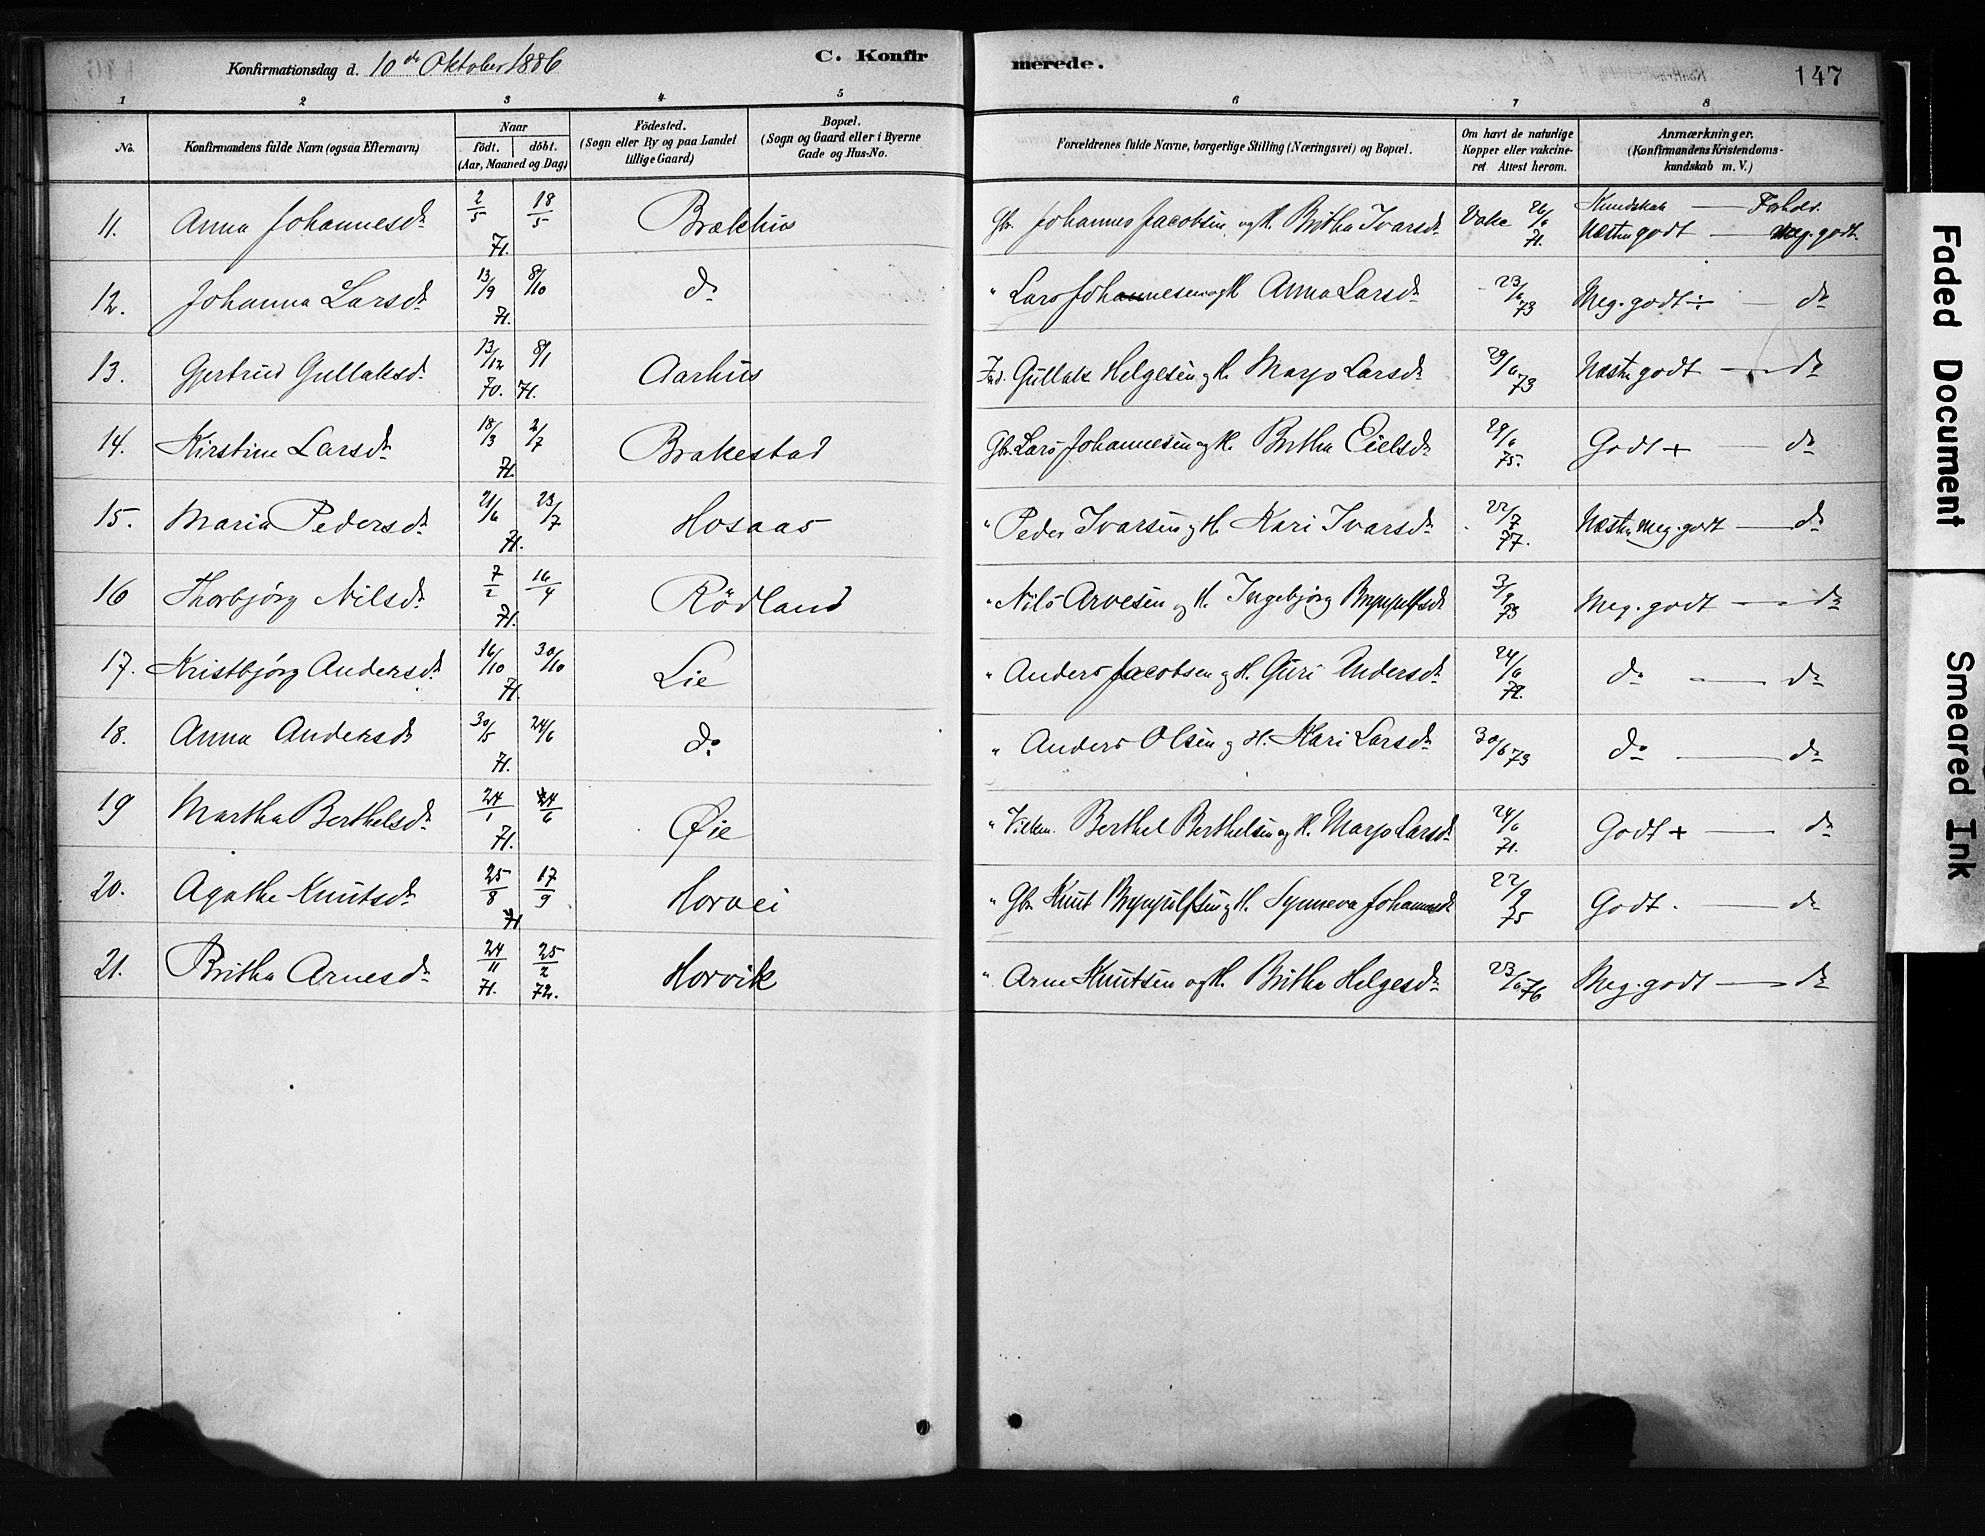 Konfirmationsdag d. 10de Oktober 1886
C. Konfir
merede.
147
1 2 3 4 5 6 7 8
No.
Konfirmandens fulde Navn (ogsaa Efternavn)
Naar
födt. döbt.
(Aar, Maaned og Dag)
Födested.
(Sogn eller By og paa Landet
tillige Gaard)
Bopæl.
(Sogn og Gaard eller i Byerne
Gade og Hus-No.
Forældrenes fulde Navne, borgerlige Stilling (Næringsvei) og Bopæl.
Om havt de naturlige
Kopper eller vakcine-
ret Attest herom.
Anmærkninger.
(Konfirmandens Kristendoms-
kundskab m. V.)
Kundskab — Forhol.
11. Anna Johannesdr. 2/5 18/5 71. Brækhus Gbr. Johannes Jacobsen og H. Britha Ivarsdr. Vakc 26/6 71. Næsten godt — meg. godt.
12. Johanna Larsdr. 13/9 8/10 71. do " Lars Johannesen og H. Anna Larsdr. 23/6 73 Meg. godt ÷ — do
13. Gjertrud Gullaksdr. 13/12 70. 8/1 71. Aarhus Ind. Gullak Helgesen og H. Marjo Larsdr. 29/6 73 Næsten godt — do
14. Kirstine Larsdr. 18/3 2/7 71. Brakestad Gbr. Lars Johannesen og H. Britha Eielsdr. 29/6 75. Godt + do
15. Maria Pedersdr. 21/6 23/7 71. Hosaas " Peder Ivarsen og H. Kari Ivarsdr. 22/7 77. Næsten meg. godt — do
16 Thorbjørg Nilsdr. 7/2 16/4 71. Rödland " Nils Arvesen og H. Ingebjörg Brynjulfsdr. 3/9 73 Meg. godt — do
17. Kristbjørg Andersdr. 16/10 30/10 71. Lie " Anders Jacobsen og H. Guri Andersdr. 24/6 72. do — do
18. Anna Andersdr. 30/5 24/6 71. do " Anders Olsen og H. Kari Larsdr. 30/6 73 do — do
19 Martha Berthelsdr. 24/1 24/6 71. Øie " Berthel Berthelsen og H. Marjo Larsdr. 24/6 71. Godt + — do
20. Agathe Knutsdr. 25/8 17/9 71 Horvei " Gbr. Knut Brynjulfsen og H. Synneva Johannesdr. 22/9 75 Godt. — do
21. Britha Arnesdr. 24/11 71. 25/2 72. Horvik " Arne Knutsen og H. Britha Helgesdr. 23/6 76 Meg. godt — do
Faded Document
Smeared Ink